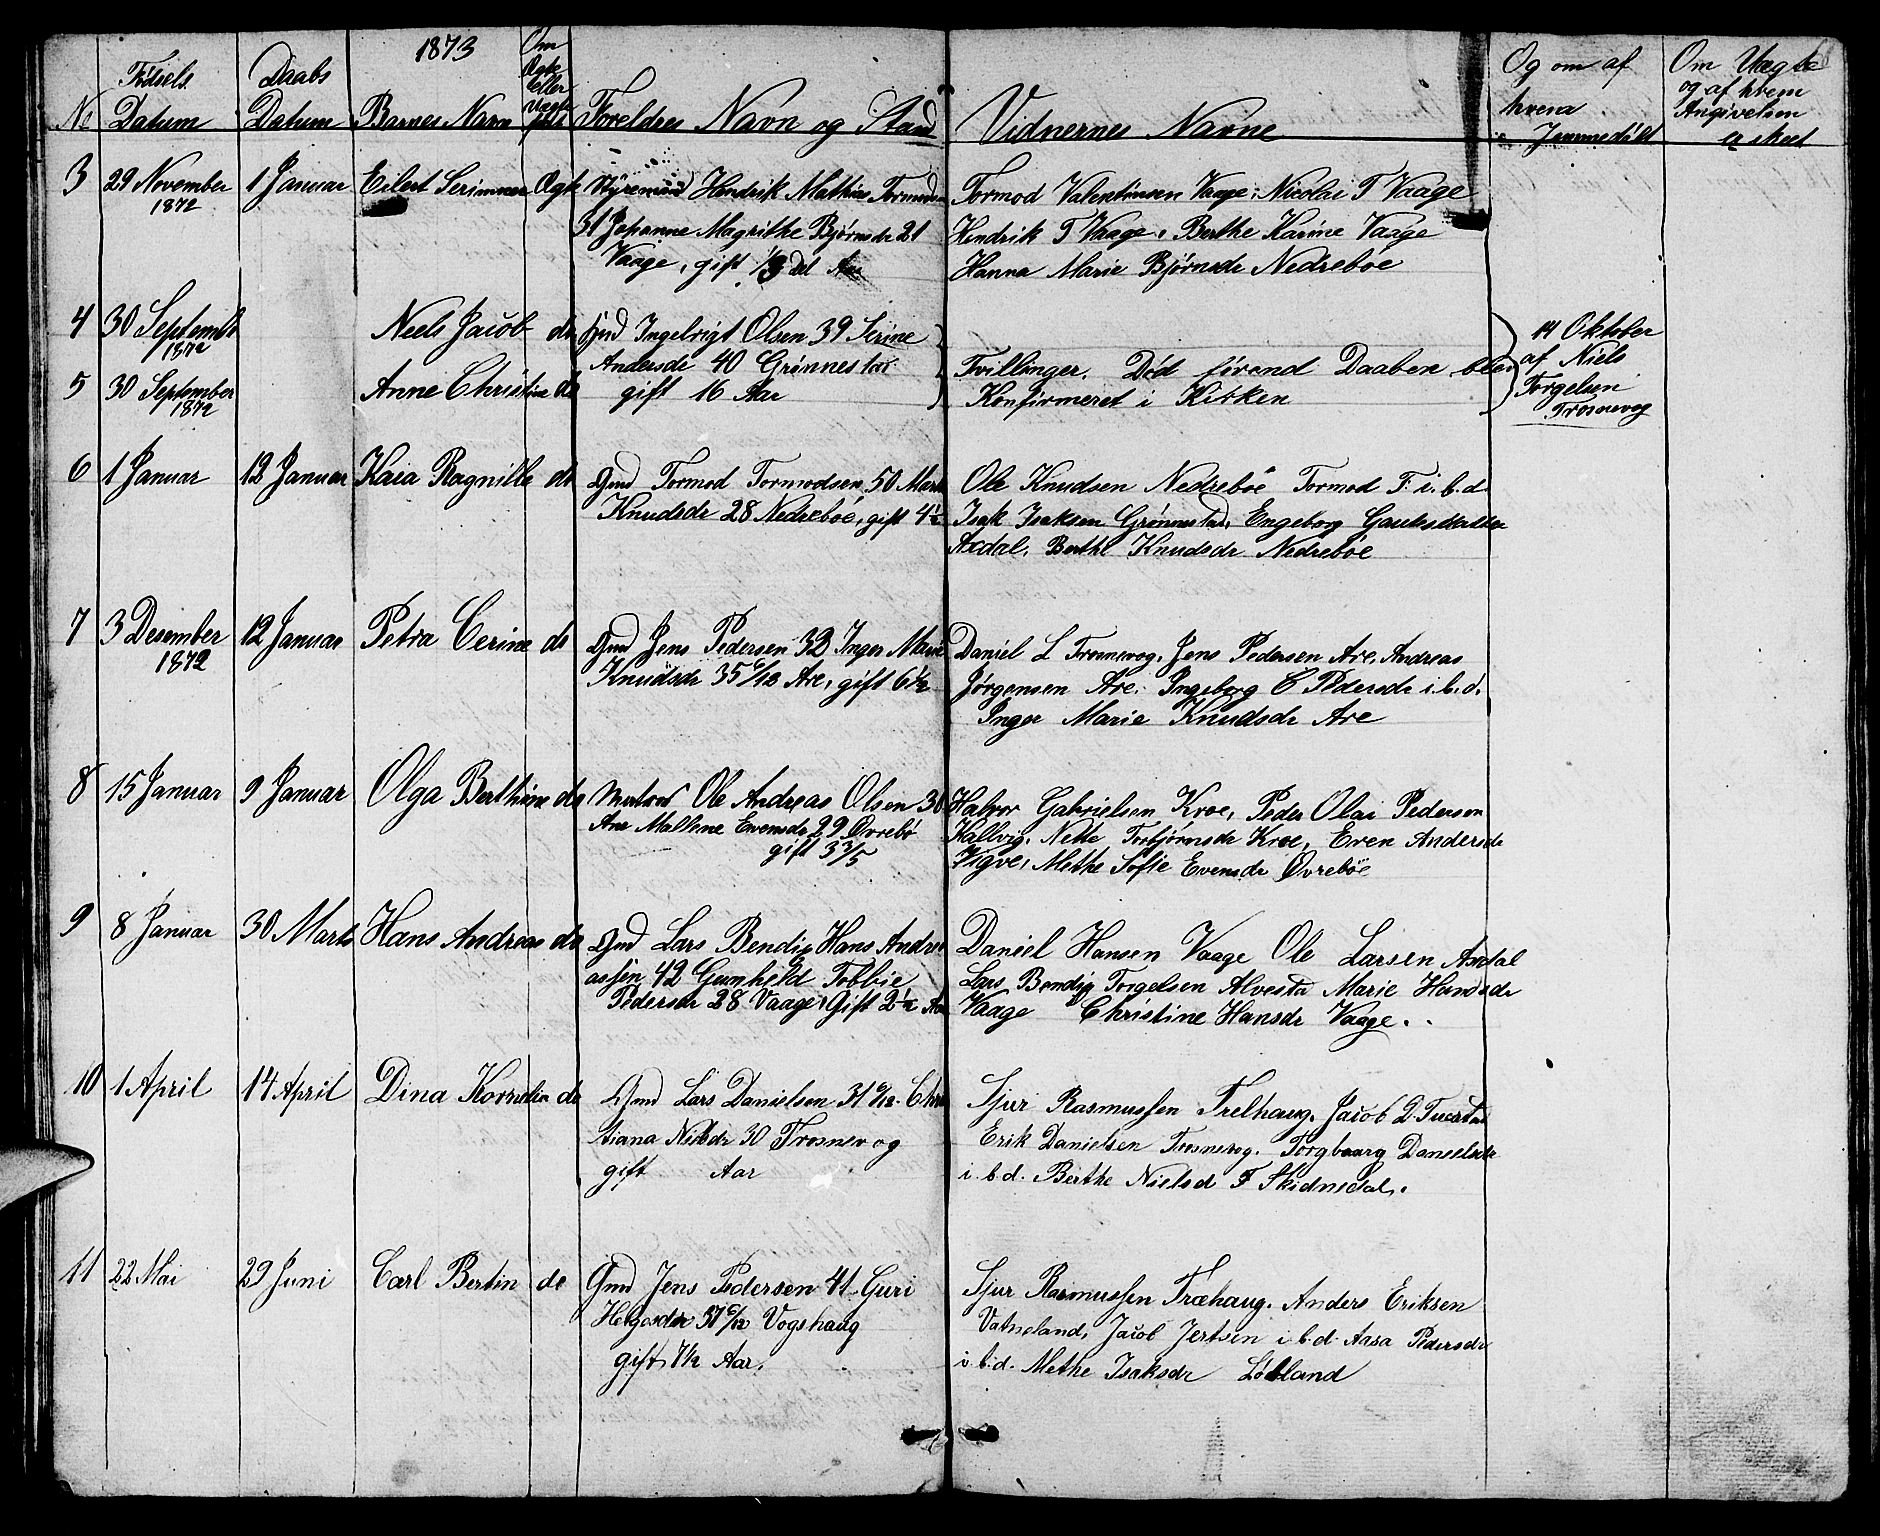 1873
No
Fødsels Datum
Daabs Datum
Barnets Navn
Om Ægte Eller Uægte
Foreldres Navn og Stand
Vidnernes Navne
Og om af hvem Hjemmedøbt
Om Uægte og af hvem Angivelsen er skeet
3 29 November 1872 1 Januar Eilert Ægte Hendrik Mathias
31 Johanne Magrithe Bjørnsdr 21
Vaage, gift
Tormod Valentinsen Vaage, Nicolai T Vaage
Hendrik T Vaage. Berthe Karine Vaage
Hanna Marie Bjørnsdr Nedrebøe
4 30 Septembr 1872 Neels Jacob do Gmd Ingebrigt Olsen 39 Serine
Andersdr 40 Grønnestad
5 30 September 1872 Anne Christine do gift 16 Aar
Tvillinger. Død førend Daaben blev
Konfirmeret i Kirken
14 Oktober
af Niels
Torgelsen
Trosnevog
6 1 Januar 12 Januar Kaia Ragnille do Gmd Tormod Tormodsen 50 Marte
Knudsdr 28 Nedrebøe, gift 4½
Ole Knudsen Nedrebøe Tormod T. i. b. d.
Isak Isaksen Grønnestad, Engeborg
Axdal, Berthe Knudsdr Nedrebøe
7 3 Desember 1872 12 Januar Petra Cerine do Gmd Jens Pedersen 32 Inger Marie
Knudsdr 35 6/12 Are, gift 6½
Daniel L Trosnevog, Jens Pedersen Are, Andreas
Jørgensen Are. Ingeborg C Pedersdr i. b. d.
Inger Marie Knudsdr Are
8 15 Januar 9 Januar Olga Berthine do Ole Andreas Olsen 30
Ane Mallene Evensdr 29 Øvrebø
gift 3 3/5
Halvor Gabrielsen Kroe, Peder Olai Pedersen
Hallvig, Nette Torbjørnsdr Kroe, Even Andersdr
Vigve, Methe Sofie Evensdr Øvrebøe
9 8 Januar 30 Marts Hans Andreas do Gmd Lars Bendix Hans Andre
assen 42 Gunheld Tobbie
Pedersdr 28 Vaage, Gift 2½ Aar
Daniel Hansen Vaage Ole Larsen Axdal
Lars Bendix Torgelsen Alvesta Marie Hansdr
Vaage Christine Hansdr Vaage.
10 1 April 14 April Dina Kornelia do Gmd Lars Danielsen 31 6/12. Chri
stiana Nielsdr 30 Trosnevog
gift Aar
Sjur Rasmussen Trelhaug, Jacob D.
Erik Danielsen Trosnevog. Torgbaarg Danielsdr
i. b. d. Berthe Nielsd T Skidnedal.
11 22 Mai 29 Juni Carl Bertin do Gmd Jens Pedersen 41 Guri
Helgesdr 37 6/12 Vogshaug
gift 7½ Aar.
Sjur Rasmussen Træhaug. Anders Eriksen
Vatneland, Jacob Jertsen i. b. d. Aasa Pedersdr
i. b. d. Methe Isaksdr Løbland